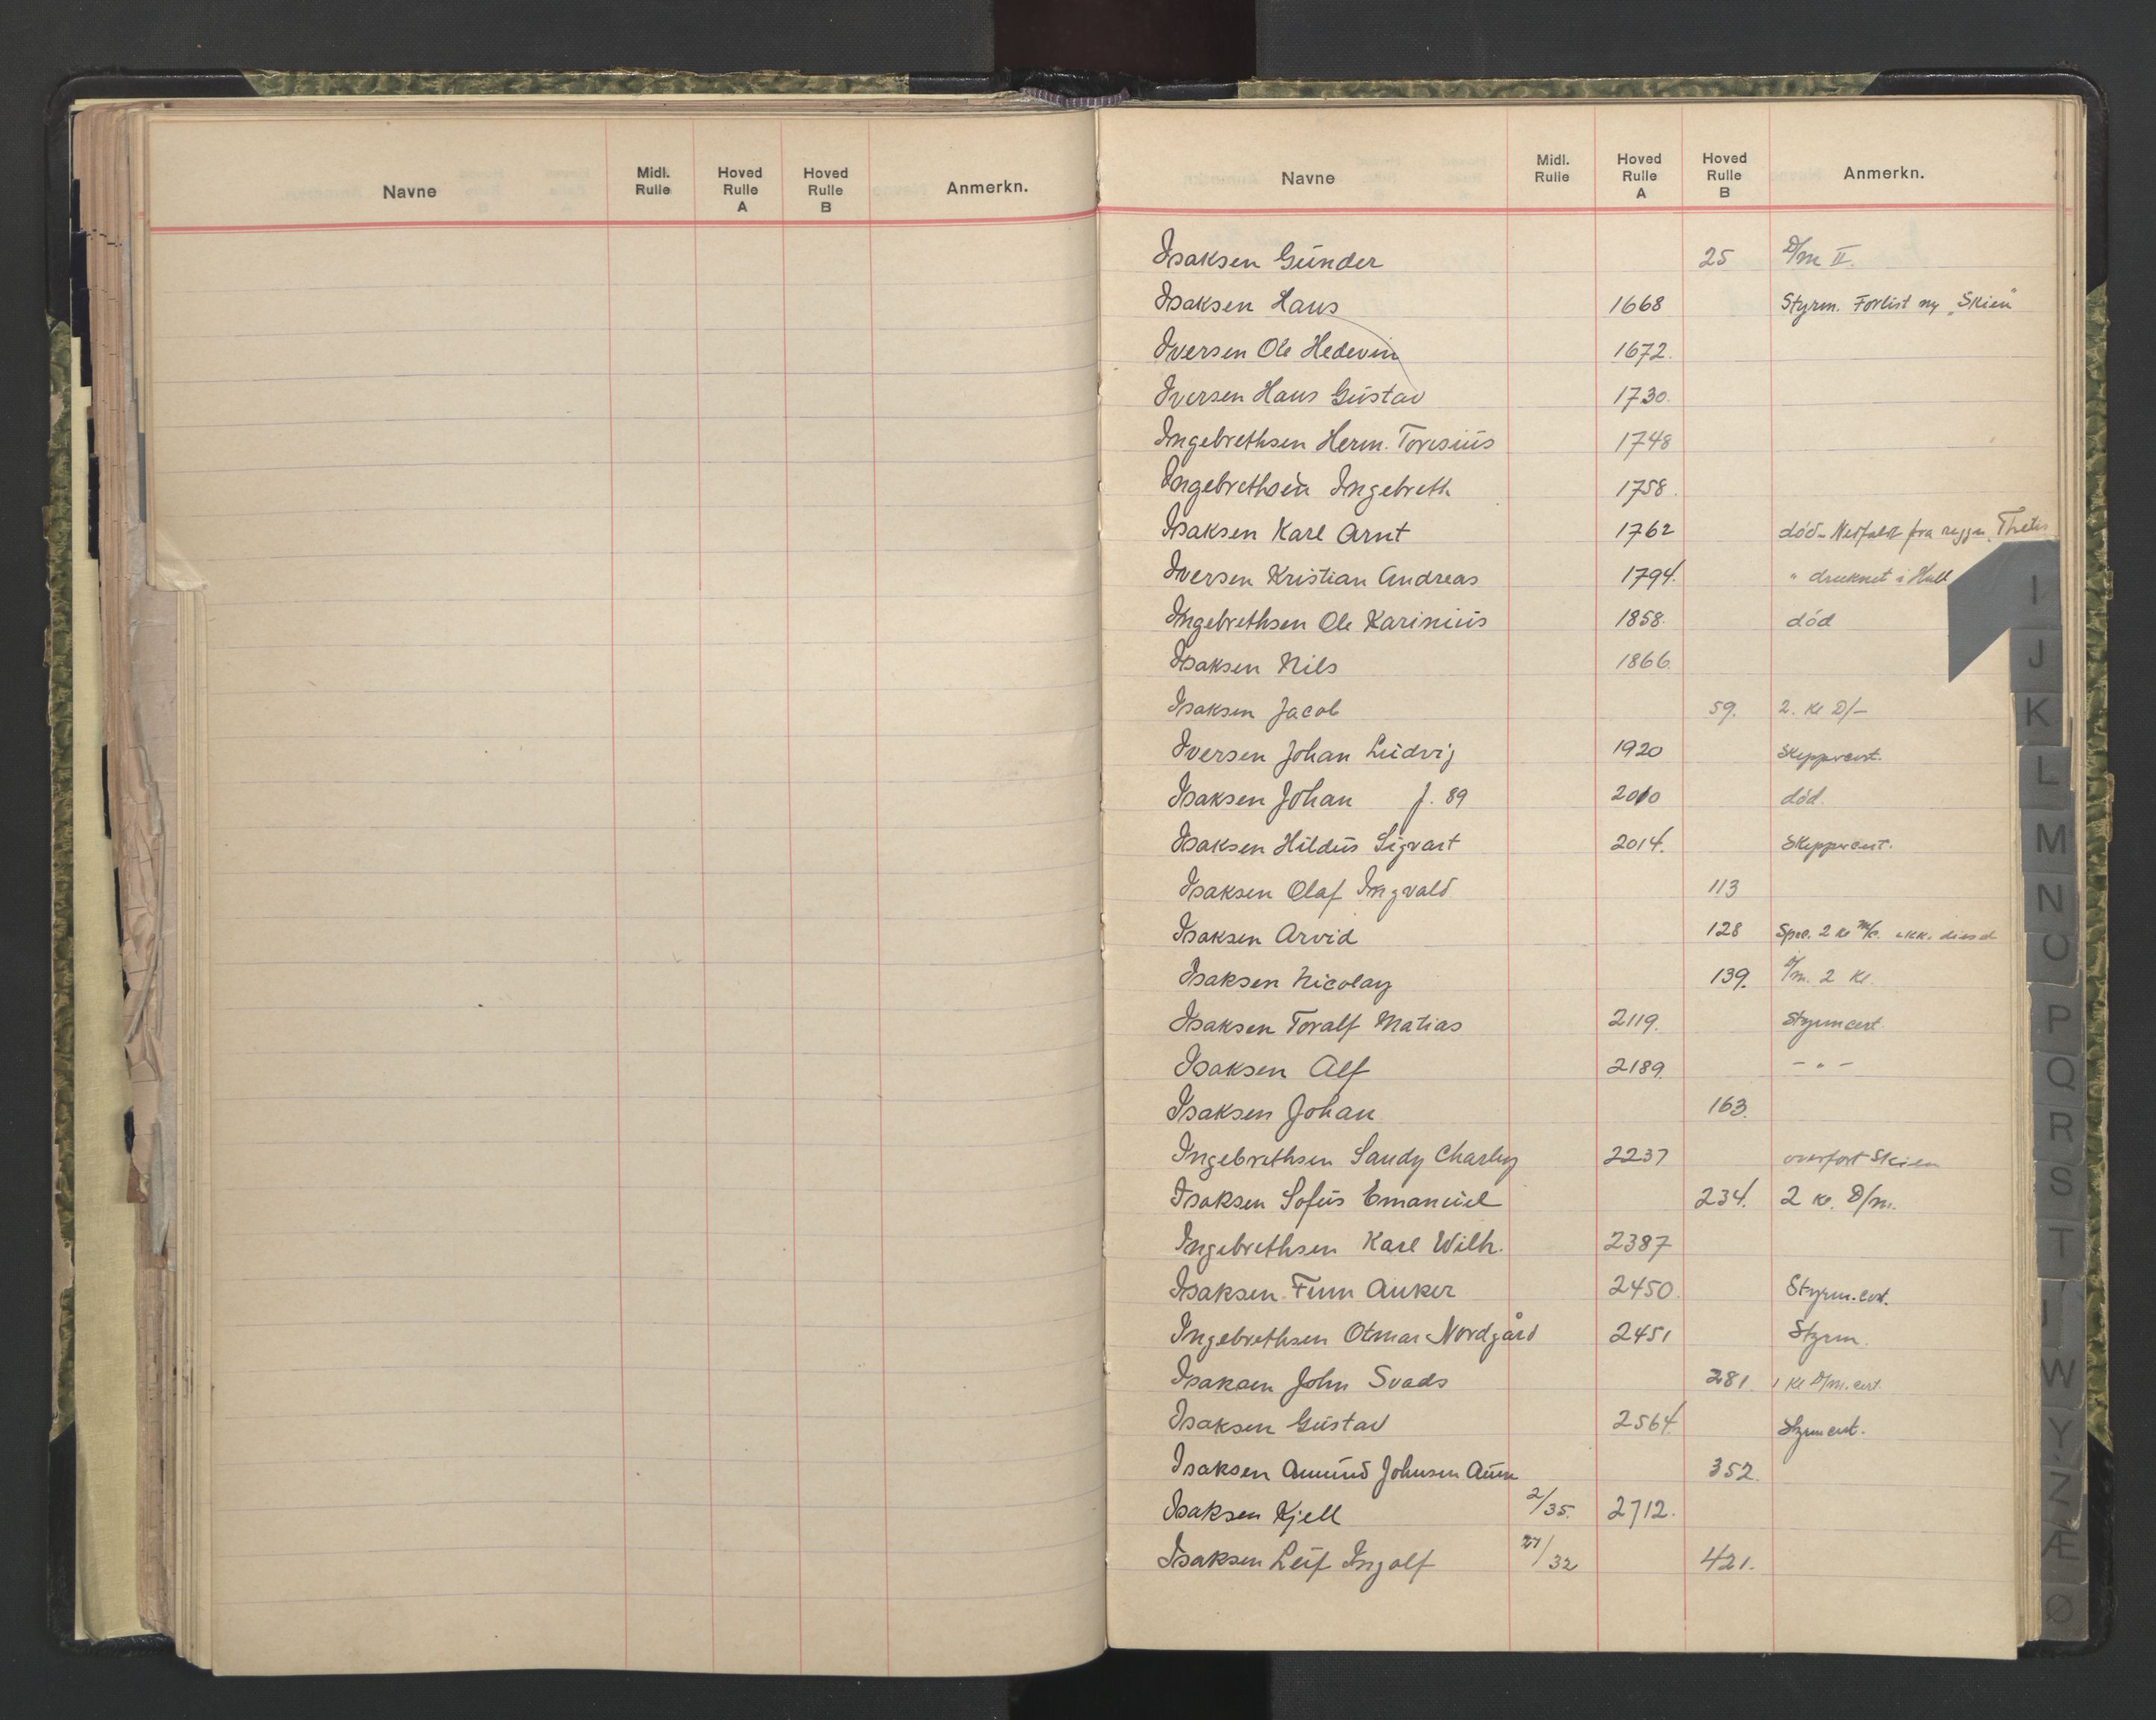 Navne Midl. Rulle Hoved Rulle A Hoved Rulle B Anmerkn.
Navne Midl. Rulle Hoved Rulle A Hoved Rulle B Anmerkn.
Isaksen Gunder 25 D/m II.
Isaksen Hans 1668 Styrm. Forlist "Skien"
Iversen Ole Hedevin 1672.
Iversen Hans Gustav 1730.
Ingebrethsen Herm. Toresius 1748
Ingebrethsen Ingebreth 1758.
Isaksen Karl Arnt 1762 död- Nedfaldt fra riggen Thetis
Iversen Kristian Andreas 1794. " druknet i Hull
Ingebrethsen Ole Karinius 1858. död
Isaksen Nils 1866.
Isaksen Jacob 59. 2. Kl D/-
Iversen Johan Ludvig 1920 Skeppscert.
Isaksen Johan f. 89 2010 död.
Isaksen Hildus Sigvart 2014. Skeppscert.
Isaksen Olaf Ingvald 113
Isaksen Arvid 128 Spec. 2 kl m/c.
Isaksen Nicolay 139. D/m. 2 Kl.
Isaksen Toralf Matias 2119. Styrmcert
Isaksen Alf 2189. - " -
Isaksen Johan 163.
Ingebrethsen Sandy Charley 2237 overfört Skien
Isaksen Sofus Emanuel 234. 2 Kl. D/m.
Ingebrethsen Karl Wilh. 2387
Isaksen Finn Anker 2450. Styrm.cert.
Ingebrethsen Otmar Nordgård 2451 Styrm.
Isaksen John Svads 281. 1 Kl D/m.cert.
Isaksen Gustav 2564. Styrmcert.
Isaksen Amund Johnsen Aune 352.
Isaksen Kjell 2/35. 2712.
Isaksen Leif Ingolf 27/32 421.
I
J
K
L
M
N
O
P
Q
R
S
T
U
W
Y
Z
Æ
Ø